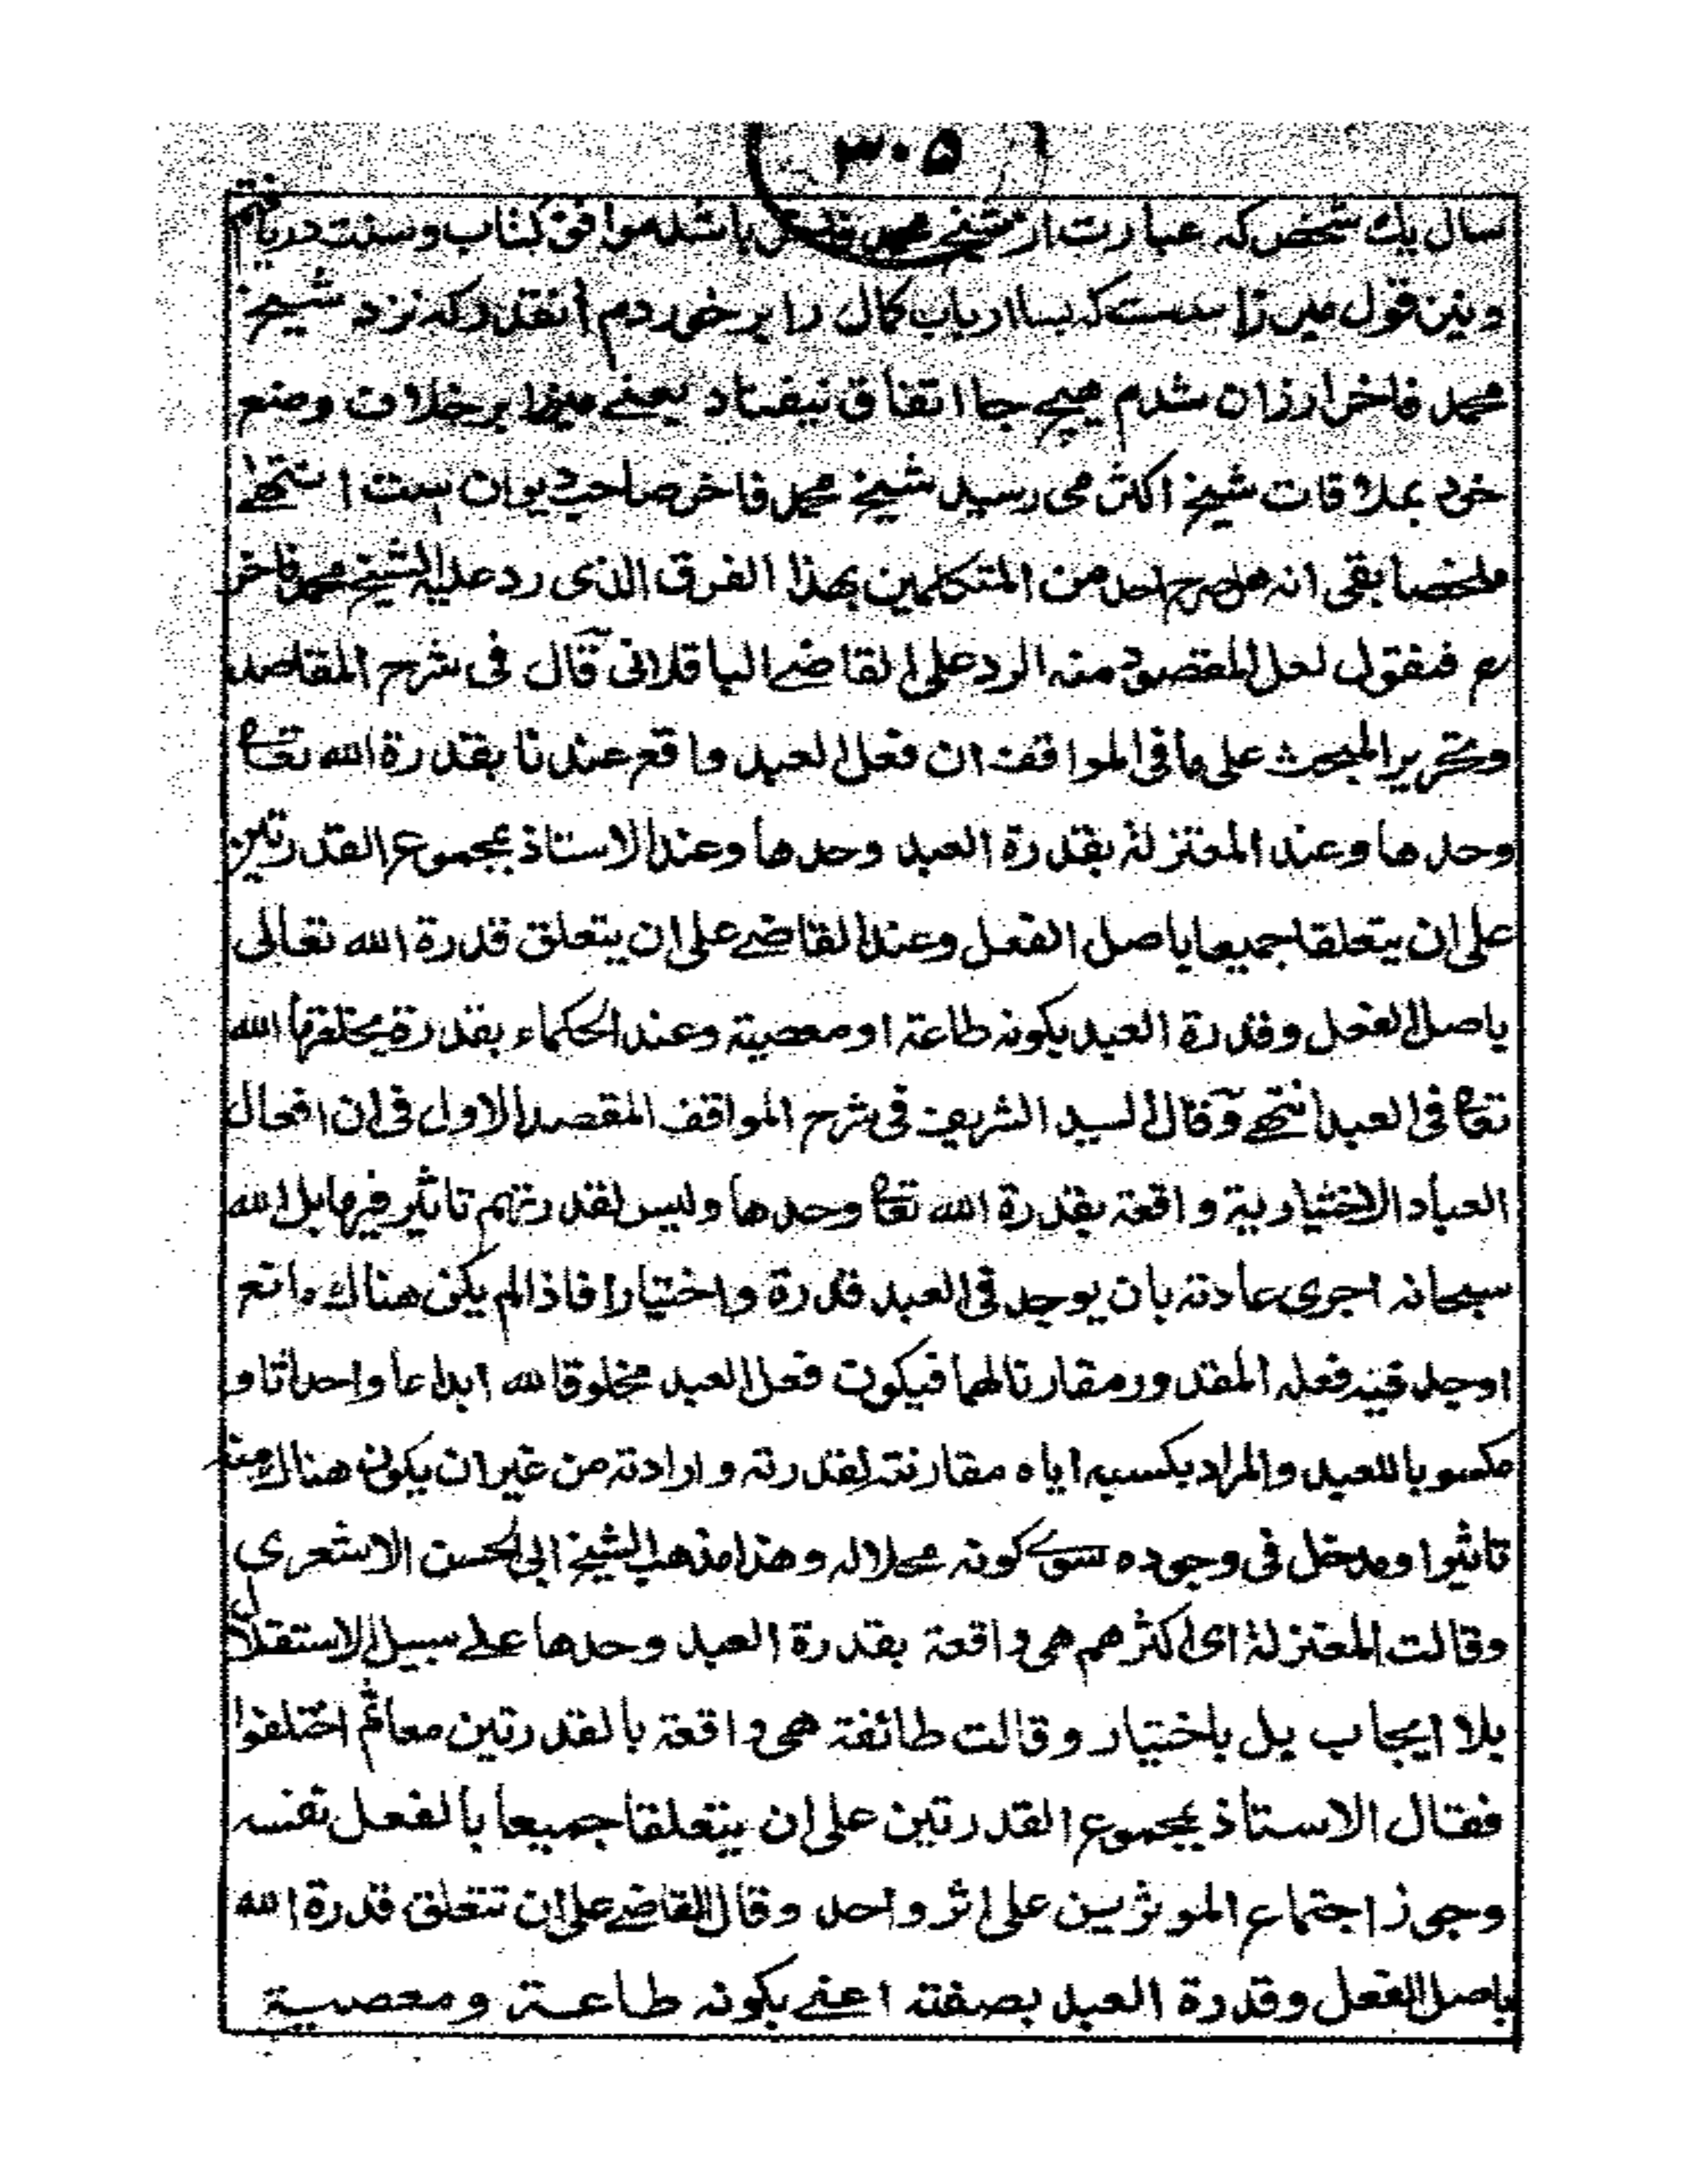 ۳۰۵
سال یك شخص که عبارت از شیخ محمد فاخر باشد موافق کتاب و سنت دریافتم
و نیز قول میرزا ست که بسا ارباب کمال را بر خوردم آنقدر که نزد شیخ
محمد فاخر ارزان شدم هیچ جا اتفاق نیفتاد یعنے میرزا بر خلاف وضع
خود بملاقات شیخ اکثر می رسید شیخ محمد فاخر صاحب دیوان ست انتهے
ملخصا بقی انه هل صرح احد من المتکلمین بهذا الفرق الذی رد علیه الشیخ محمد فاخر
رح فنقول لعل المقصود منه الرد علی القاضے الباقلانی قال فی شرح المقاصد
و تحریر المبحث علی ما فی المواقف ان فعل العبد واقع عندنا بقدرة الله تعا
وحدها وعند المعتزلة بقدرة العبد وحدها وعند الاستاذ بمجموع القدرتین
علی ان یتعلقا جمیعا باصل الفعل وعند القاضے علی ان یتعلق قدرة الله تعالی
باصل الفعل وقدرة العبد بکونه طاعة او معصیة وعند الحکماء بقدرة یخلقها الله
تعا فی العبد انتهے وقال السید الشریف فی شرح المواقف المقصد الاول فی ان افعال
العباد الاختیاریة واقعة بقدرة الله تعا وحدها ولیس لقدرتهم تاثیر فیها بل الله
سبحانه اجری عادته بان یوجد فی العبد قدرة واختیارا فاذا لم یکن هناك مانع
اوجد فیه فعله المقدور مقارنا لهما فیکون فعل العبد مخلوقا لله ابداعا واحداثا و
مکسوبا للعبد والمراد بکسبه ایاه مقارنته لقدرته وارادته من غیر ان یکون هناك منه
تاثیر او مدخل فی وجوده سوے کونه محلا له وهذا مذهب الشیخ ابی الحسن الاشعری
وقالت المعتزلة ای اکثرهم هی واقعة بقدرة العبد وحدها علے سبیل الاستقلال
بلا ایجاب بل باختیار وقالت طائفة هی واقعة بالقدرتین معا ثم اختلفوا
فقال الاستاذ بمجموع القدرتین علی ان یتعلقا جمیعا بالفعل نفسه
وجوز اجتماع الموثرین علی اثر واحد وقال القاضے علی ان تتعلق قدرة الله
باصل الفعل وقدرة العبد بصفته اعنے بکونه طاعة ومعصیة